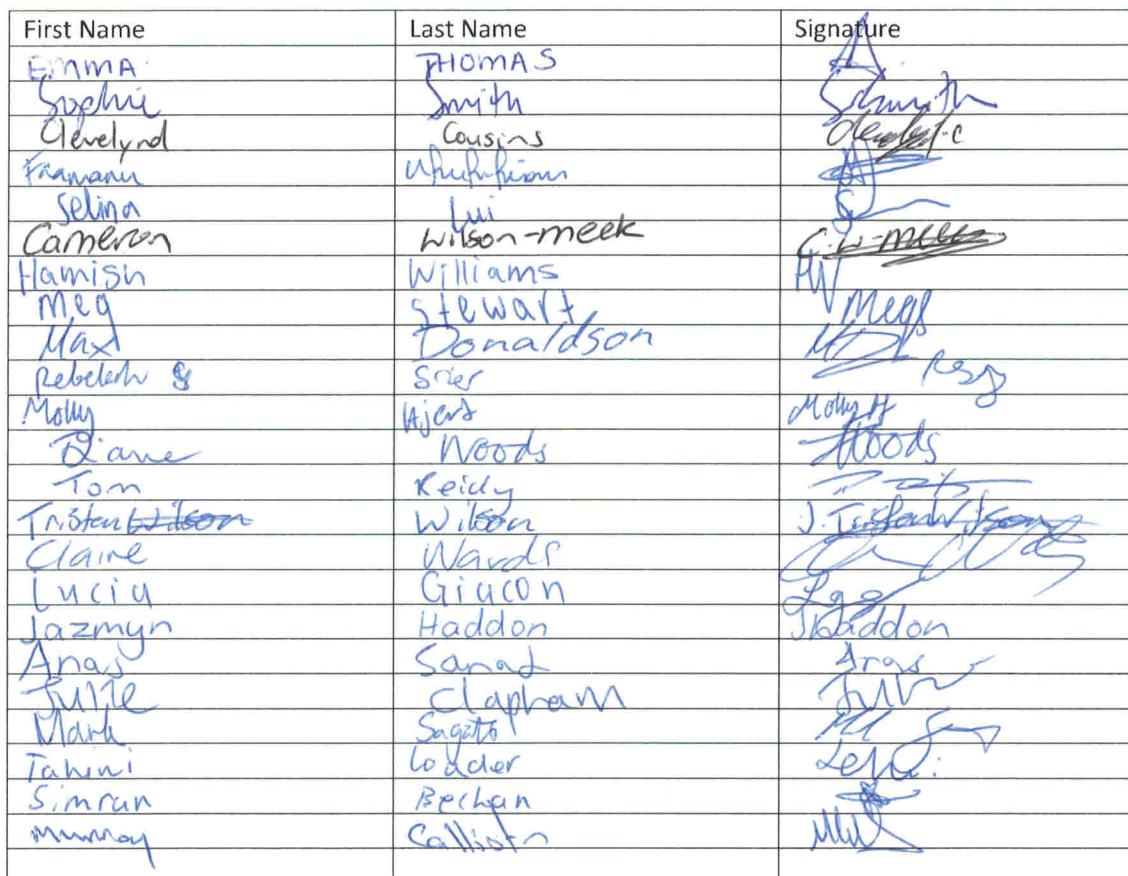 First Name Last Name Signature
EMMA THOMAS
Sophie Smith SSmith
Clevelynd Cousins
Faamanu
Selina Lui
Cameron Wilson-meek C.W-meek
Hamish Williams HW
Meg Stewart MegS
Max Donaldson MD
Srer
Molly Molly H
Diane Woods Woods
Tom Reidy
Tristan Wilson Wilson J. Tristan Wilson
Claire Wards
Lucia Giacon
Jazmyn Haddon JHaddon
Anas Sanad Anas
Julie Clapham
Mark Sagato
Tahini Loader
Simran Bechan
Murray